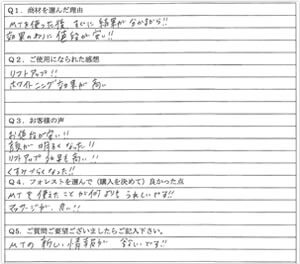 Q1．商材を選んだ理由
MTを使った後、すぐに結果が分かるから!!
効果のわりに値段が安い!!
Q2．ご使用になられた感想
リフトアップ!!
ホワイトニング効果が高い
Q3．お客様の声
お値段が安い!!
顔が明るくなった!!
リフトアップ効果も高い!!
くすみづらくなった!!
Q4．フォレストを選んで（購入を決めて）良かった点
MTを使えたことが何よりもうれしいです!!
マッサージが、良い!!
Q5．ご質問ご要望ございましたらご記入下さい。
MTの新しい情報が欲しいです!!